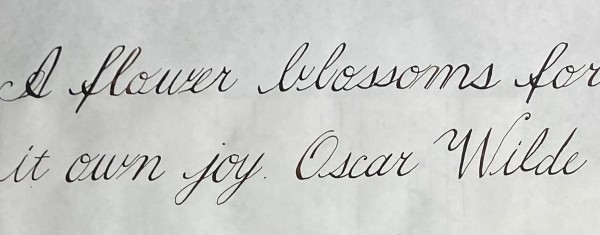 A flower blossoms for
it own joy. Oscar Wilde